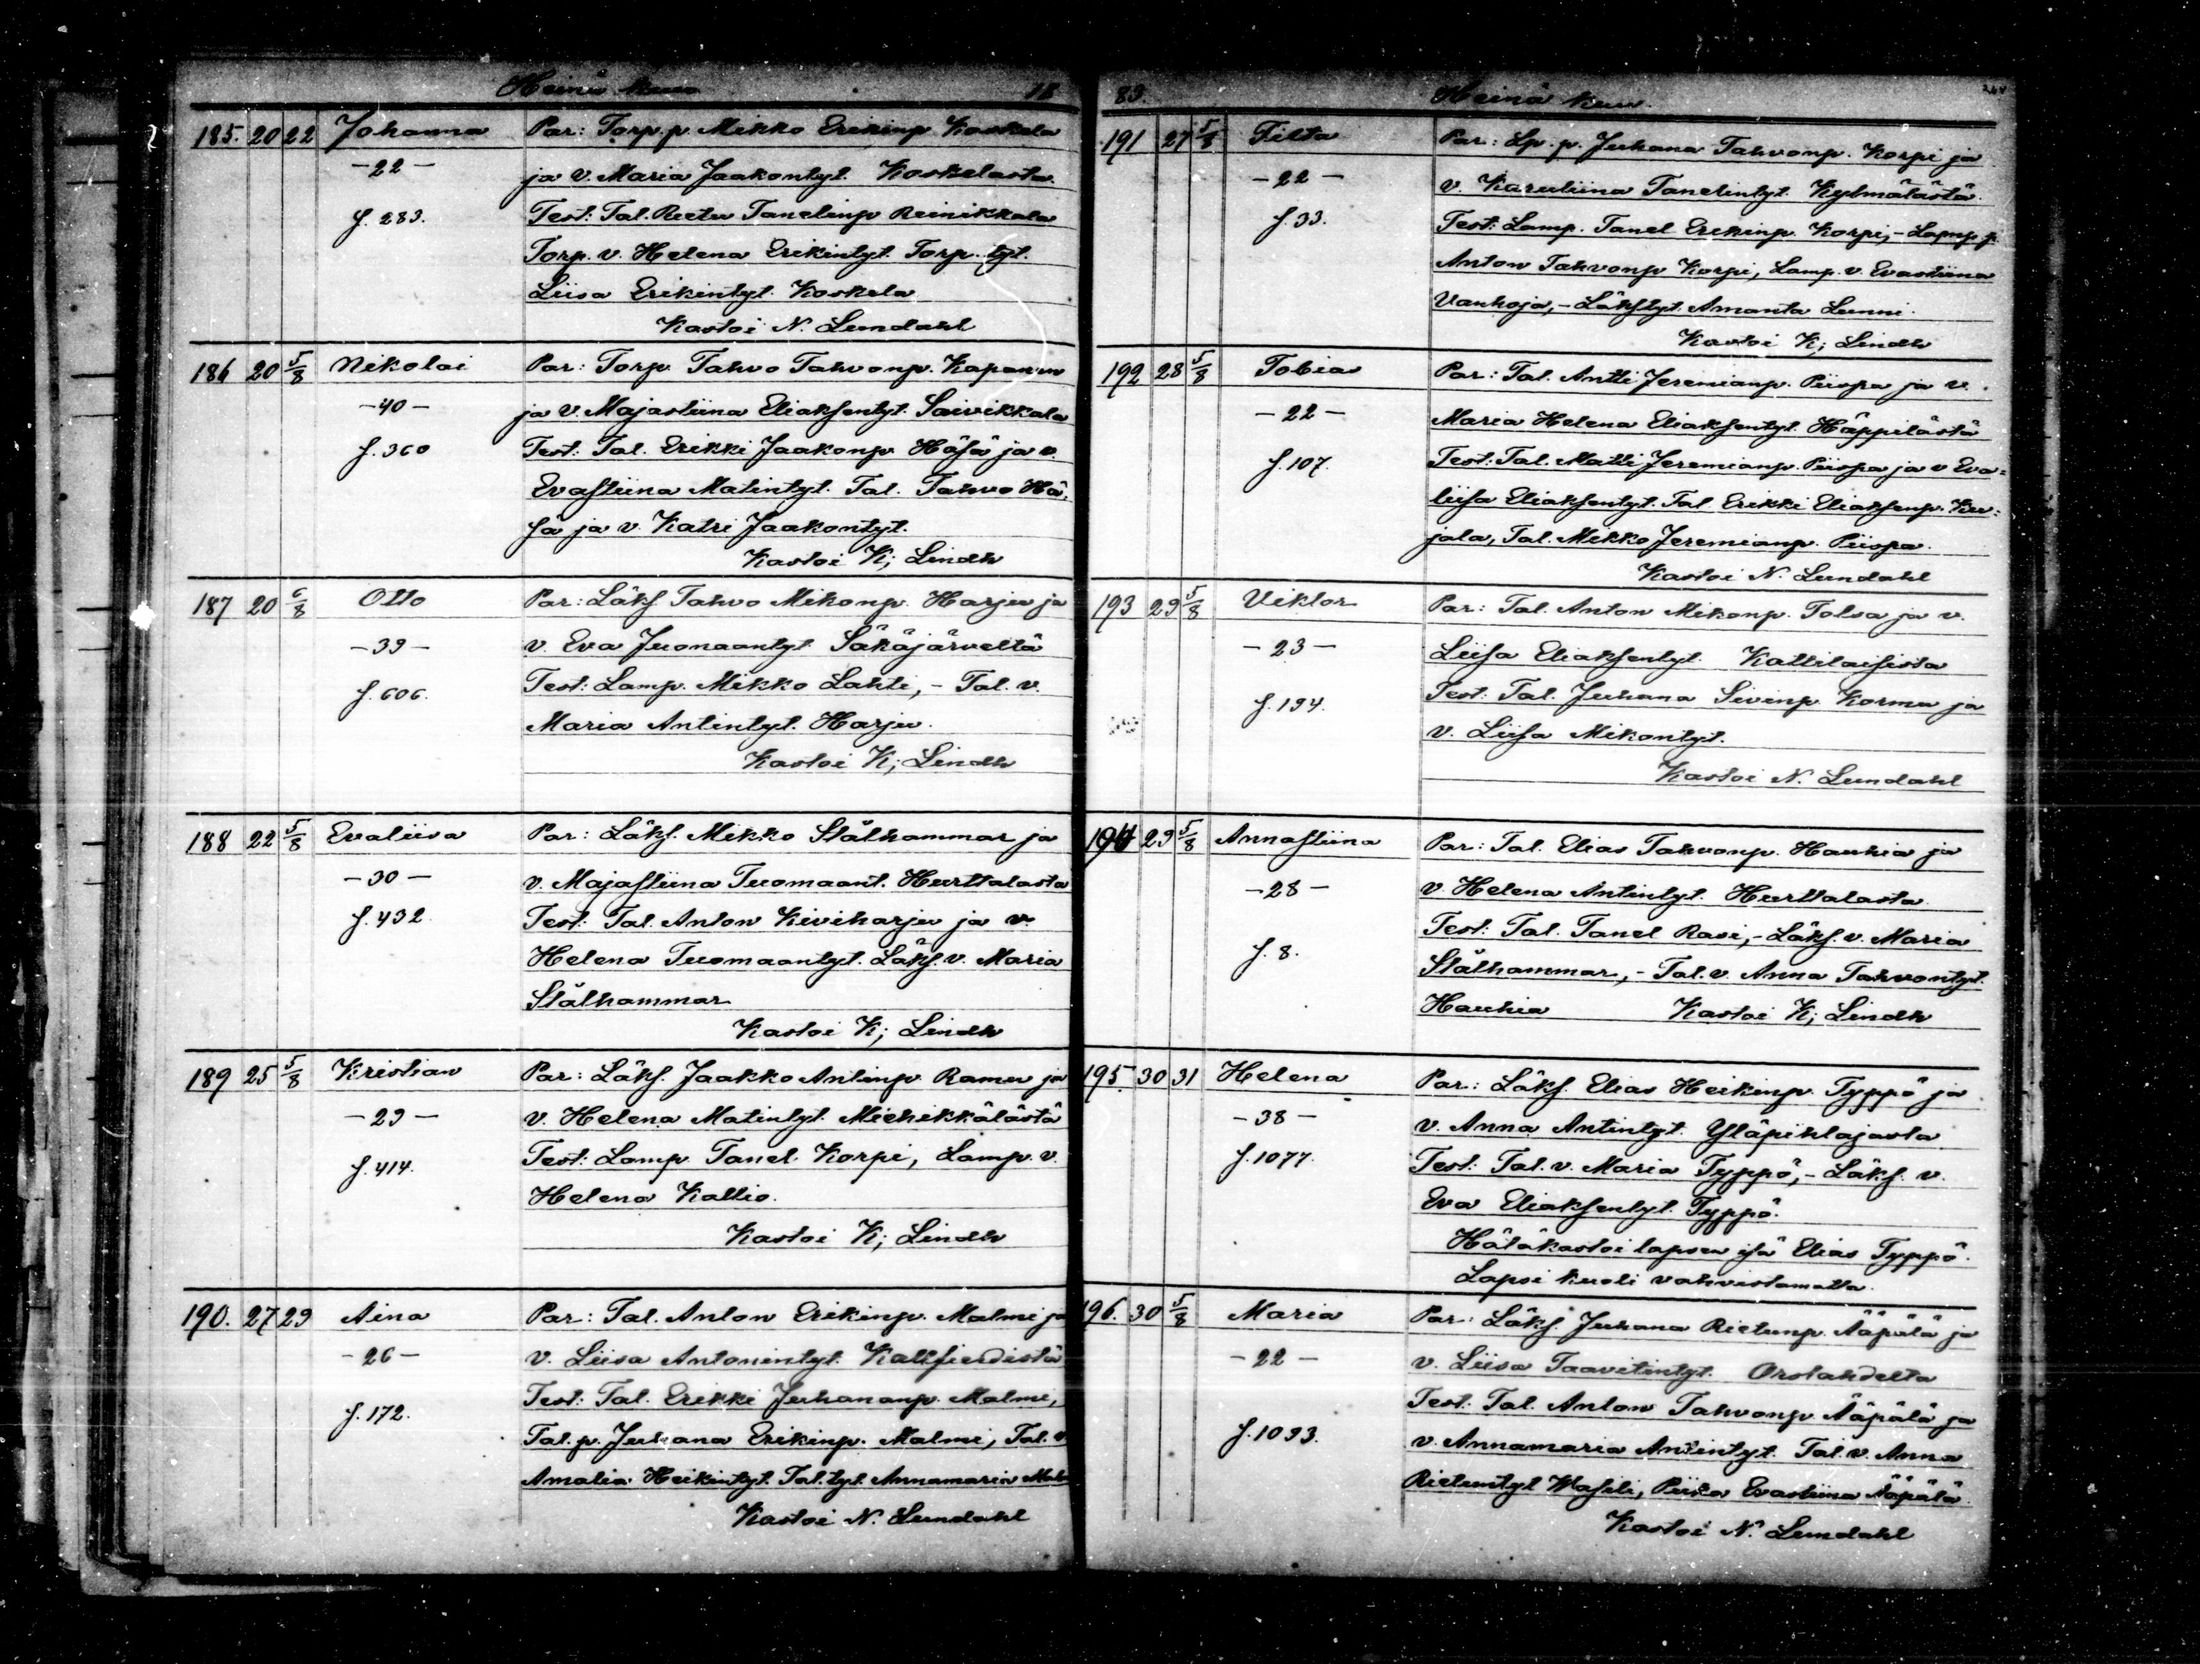 Heinä kuu 18
185. 20 22 Johanna Par: Torp. p. Mikko Erikinp. Koskela
-22- ja v. Maria Jaakontyt. Koskelasta.
f. 283. Test: Tal. Reetu Tanelinp. Reinikkala
Torp. v. Helena Erikintyt. Torp. tyt.
Liisa Erikintyt. Koskela
Kastoi N. Lundahl
186 20 5/8 Nikolai Par: Torp. Tahvo Tahvonp. Kapanen
-40- ja v. Majastiina Eliaksentyt. Saivikkala
f. 360 Test: Tal. Erikki Jaakonp. Häsä ja v.
Evastiina Matintyt. Tal. Tahvo Hä-
sä ja v. Katri Jaakontyt.
Kastoi K; Lindh
187 20 6/8 Otto Par: Läks. Tahvo Mikonp. Harju ja
-39- v. Eva Juonaantyt. Säkäjärveltä
f. 606. Test: Lamp. Mikko Lahti, - Tal. v.
Maria Antintyt. Harju.
Kastoi K; Lindh
188 22 5/8 Evaliisa Par: Läks. Mikko Stålhammar ja
-30- v. Majastiina Tuomaant. Hurttalasta
f. 432 Test: Tal. Anton Kiviharju ja v.
Helena Tuomaantyt. Läks. v. Maria
Stålhammar
Kastoi K; Lindh
189 25 5/8 Kristian Par: Läks. Jaakko Antinp. Ramu ja
-29- v. Helena Matintyt. Miehikkälästä
f. 414. Test: Lamp. Tanel Korpi, Lamp. v.
Helena Kallio.
Kastoi K; Lindh
190. 27 29 Aina Par: Tal. Anton Erikinp. Malmi ja
-26- v. Liisa Antonintyt.
f. 172. Test: Tal. Erikki Juhananp. Malmi,
Tal. p. Juhana Erikinp. Malmi, Tal. v.
Amalia Heikintyt. Tal. tyt. Annamaria
Kastoi N. Lundahl
83. Heinä kuu.
191 27 5/8 Tilta Par: Lp. p. Juhana Tahvonp. Korpi ja
-22- v. Karuliina Tanelintyt. Kylmälästä.
f. 33. Test: Lamp. Tanel Erikinp. Korpi, - Lamp. p.
Anton Tahvonp. Korpi, Lamp. v. Evastiina
Vanhoja, - Läkstyt. Amanta Lunni.
Kastoi K; Lindh
192 28 5/8 Tobias Par: Tal. Antti Jeremianp. Piispa ja v.
-22- Maria Helena Eliaksentyt. Häppilästä
f. 107. Test: Tal. Matti Jeremianp. Piispa ja v Eva-
liisa Eliaksentyt. Tal. Erikki Eliaksenp. Ku-
jala, Tal. Mikko Jeremianp. Piispa.
Kastoi N. Lundahl
193 29 5/8 Viktor Par: Tal. Anton Mikonp. Tolsa ja v.
-23- Liisa Eliaksentyt. Kattilaisista
f. 194. Test: Tal. Juhana Sivinp. Kormu ja
v. Liisa Mikontyt.
Kastoi N. Lundahl
194 29 5/8 Annastiina Par: Tal. Elias Tahvonp. Hauhia ja
-28- v. Helena Antintyt. Hurttalasta.
f. 8. Test: Tal. Tanel Rasi, - Läks. v. Maria
Stålhammar, - Tal. v. Anna Tahvontyt.
Hauhia Kastoi K; Lindh
195. 30 31 Helena Par: Läks. Elias Heikinp. Typpö ja
-38- v. Anna Antintyt. Yläpihlajasta
f. 1077. Test: Tal. v. Maria Typpö, - Läks. v.
Eva Eliaksentyt. Typpö.
Hätäkastoi lapsen isä Elias Typpö.
Lapsi kuoli vahvistamatta.
196. 30 5/8 Maria Par: Läks. Juhana Rietunp. Ääpälä ja
-22- v. Liisa Taavitintyt. Orslahdelta
f. 1093. Test: Tal. Anton Tahvonp. Ääpälä ja
v. Annamaria Antintyt. Tal. v. Anna
Rietuntyt Wasili, Piika Evastiina Ääpälä.
Kastoi N. Lundahl